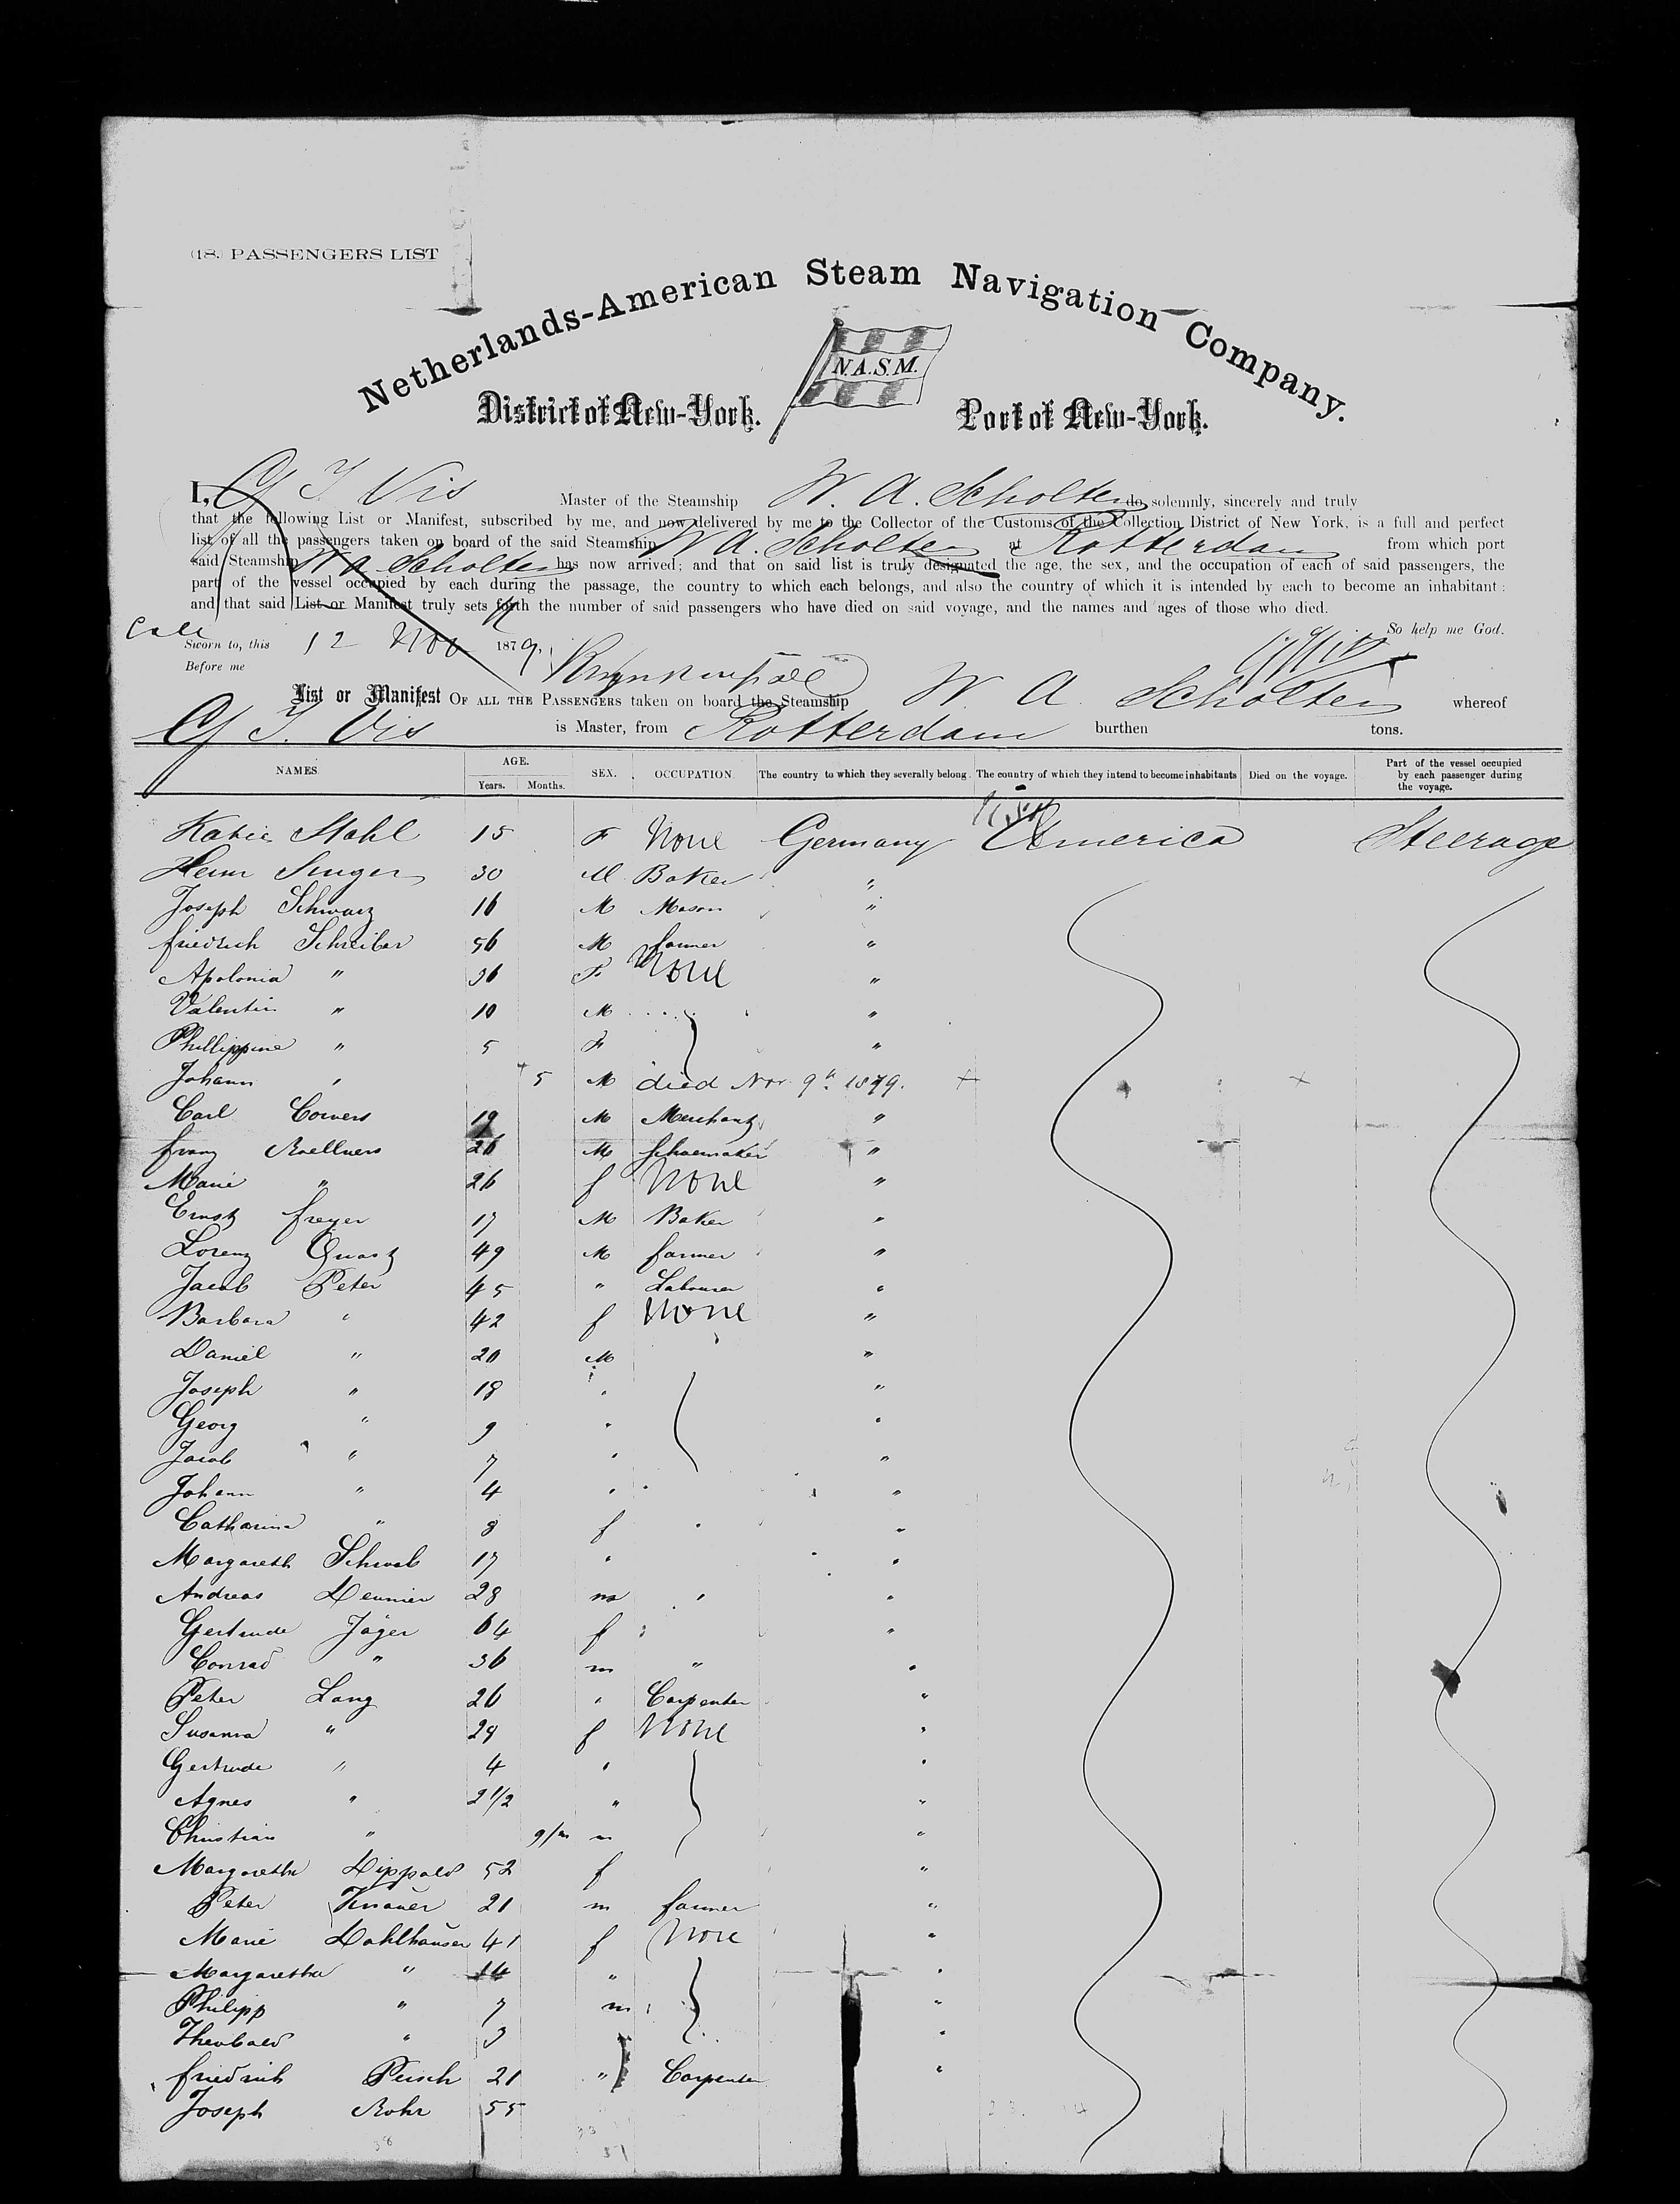 (18.) PASSENGERS LIST
Netherlands-American Steam Navigation Company.
N.A.S.M.
District of New-York. Port of New-York.
I, Vis Master of the Steamship W. A. Scholten do solemnly, sincerely and truly
that the following List or Manifest, subscribed by me, and now delivered by me to the Collector of the Customs of the Collection District of New York, is a full and perfect
list of all the passengers taken on board of the said Steamship W. A. Scholten at Rotterdam from which port
said Steamship W A Scholten has now arrived; and that on said list is truly designated the age, the sex, and the occupation of each of said passengers, the
part of the vessel occupied by each during the passage, the country to which each belongs, and also the country of which it is intended by each to become an inhabitant:
and that said List or Manifest truly sets forth the number of said passengers who have died on said voyage, and the names and ages of those who died.
So help me God.
Sworn to, this 12 Nov 1879.
Before me
List or Manifest OF ALL THE PASSENGERS taken on board the Steamship W. A. Scholten whereof
Vis is Master, from Rotterdam burthen tons.
NAMES AGE. Years. Months. SEX. OCCUPATION The country to which they severally belong. The country of which they intend to become inhabitants Died on the voyage. Part of the vessel occupied by each passenger during the voyage.
Katie Stahl 15 F None Germany America Steerage
Heinr Singer 30 M Baker "
Joseph Schwarz 16 M Mason "
friedrich Schreiber 56 M farmer "
Apolonia " 36 F None "
Valentin " 10 M "
Phillippine " 5 F "
Johann " 5 M died Nov. 9th 1879.
Carl Cowers 19 M Merchant "
franz Roellners 26 M Schoemaker "
Marie " 26 f None "
Ernst freyer 17 M Baker "
Lorenz Quast 49 M farmer "
Jacob Peter 45 " Labourer "
Barbara " 42 f None "
Daniel " 20 M "
Joseph " 18 " "
Georg " 9 " "
Jacob " 7 " "
Johann " 4 " "
Catharina " 8 f "
Margareth Schwab 17 " "
Andreas 28 m " "
Gertrude Jäger 64 f " "
Conrad " 36 m " "
Peter Lang 26 " Carpenter "
Susanna " 28 f None "
Gertrude " 4 " "
Agnes " 2 1/2 " "
Christian " 9/m m "
Margaretha Dippold 52 f "
Peter Knauer 21 m farmer "
Marie Dahlhauser 41 f None "
Margaretha " 14 " "
Philipp " 7 m "
Theobald " 3 "
friedrich Peisch 21 " Carpenter "
Joseph Rohr 55